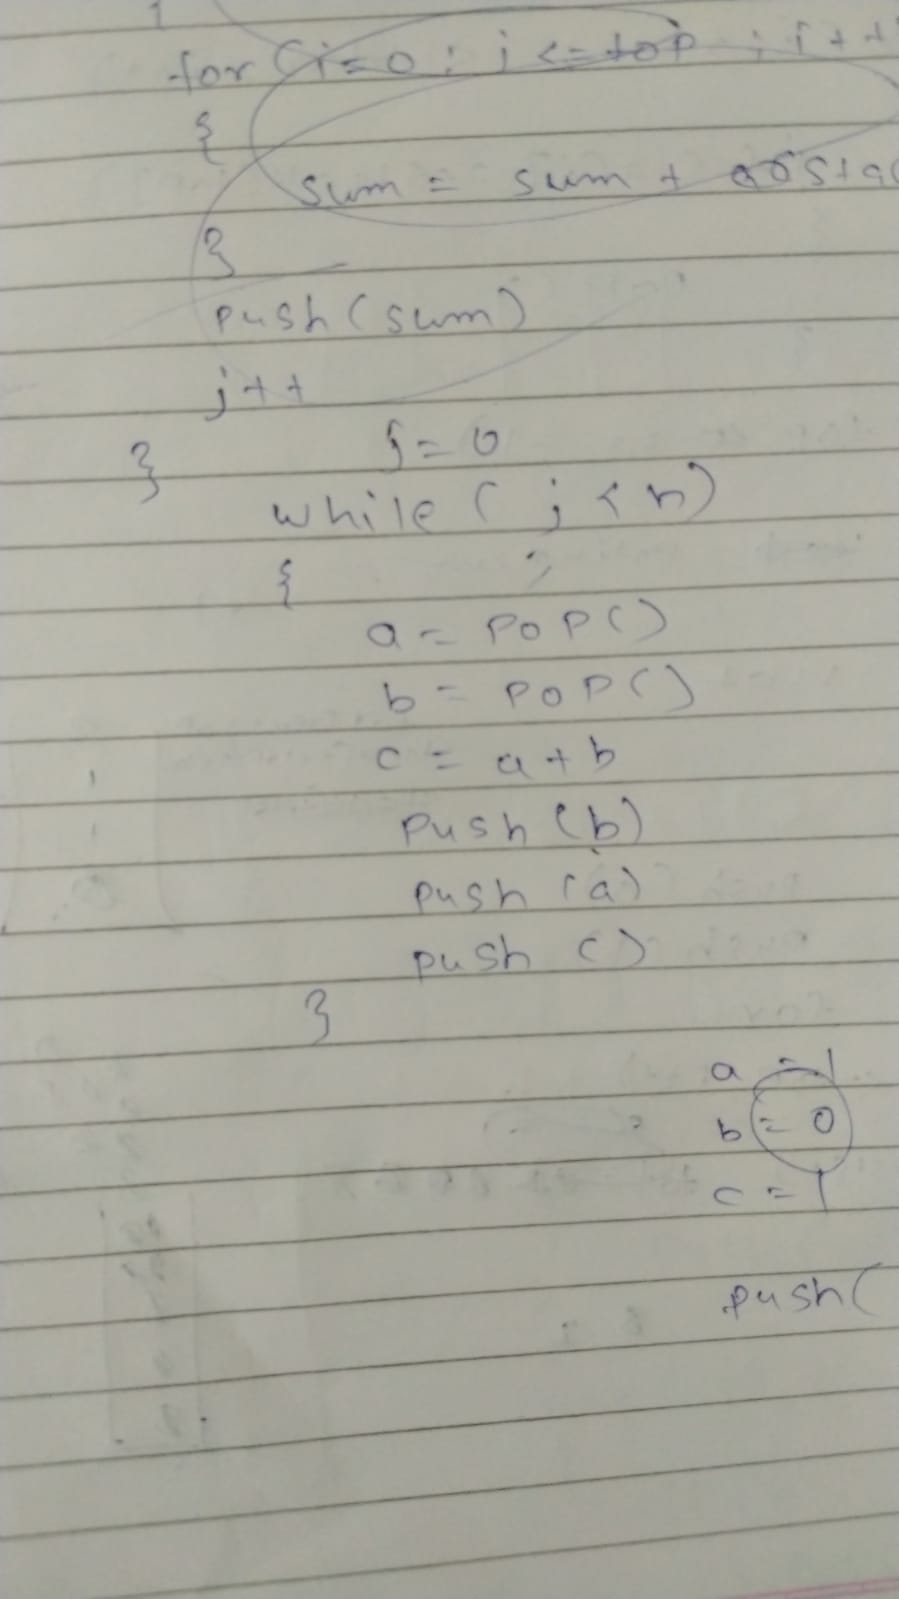 for (i=0 ; i <= top ; i++
{
sum = sum +
}
push (sum)
j++
}
j=0
while ( j < n)
{
a = POP()
b = POP()
c = a+b
push (b)
push (a)
push ()
}
a = 1
b = 0
c = 1
push(